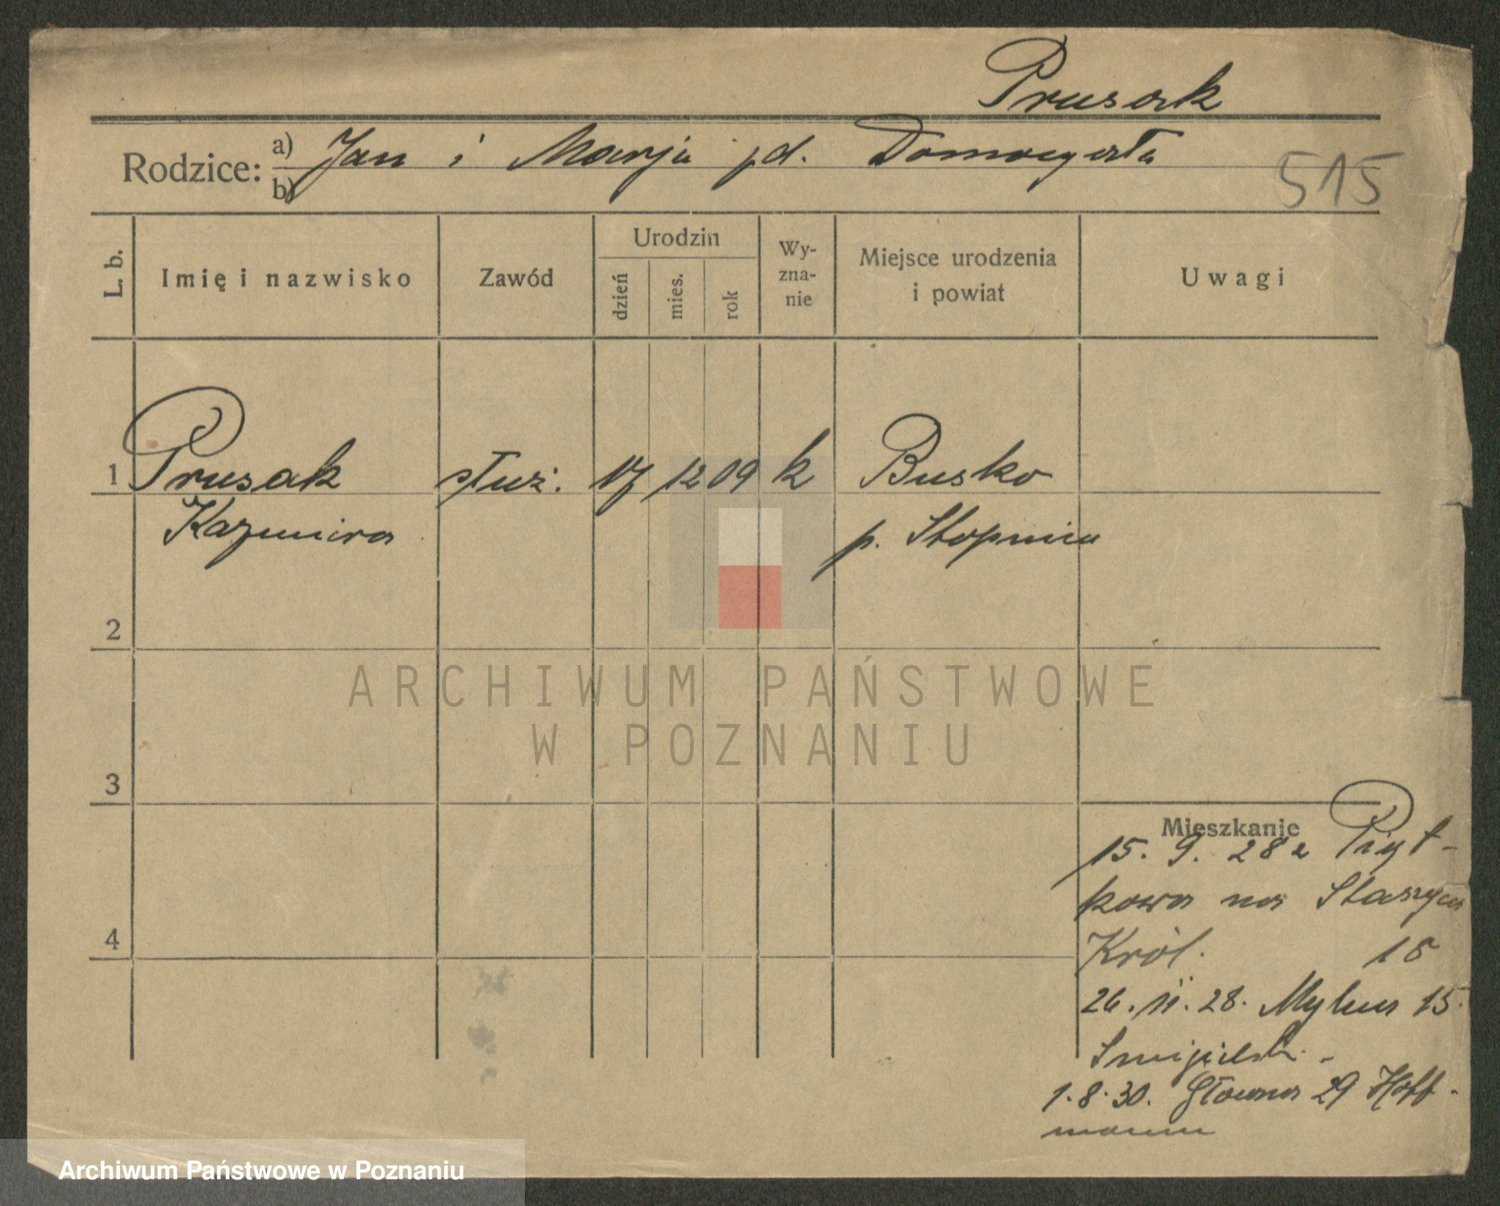 Prusak
Rodzice: a) Jan i Marja pd.
b)
515
L. b.
Imię i nazwisko
Zawód
Urodzin
dzień
mies.
rok
Wy-
zna-
nie
Miejsce urodzenia
i powiat
Uwagi
1 Prusak służ. 17 12 09 k Busko
Kazimira p. Stopnica
2
ARCHIWUM PAŃSTWOWE
W POZNANIU
3
Mieszkanie
15. 9. 28 z Piąt-
kowa na Staszyca
Król. 18
26. 11. 28. Mylna 15.
1. 8. 30. Główna 29 Hoff-
mann
4
Archiwum Państwowe w Poznaniu